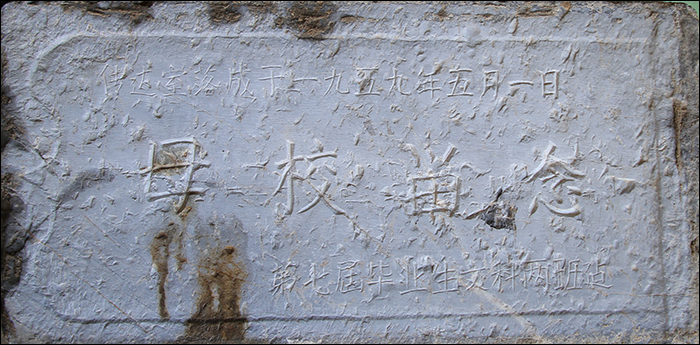 传达室落成于一九五九年五月一日
母校畄念
第七届毕业生文科两班